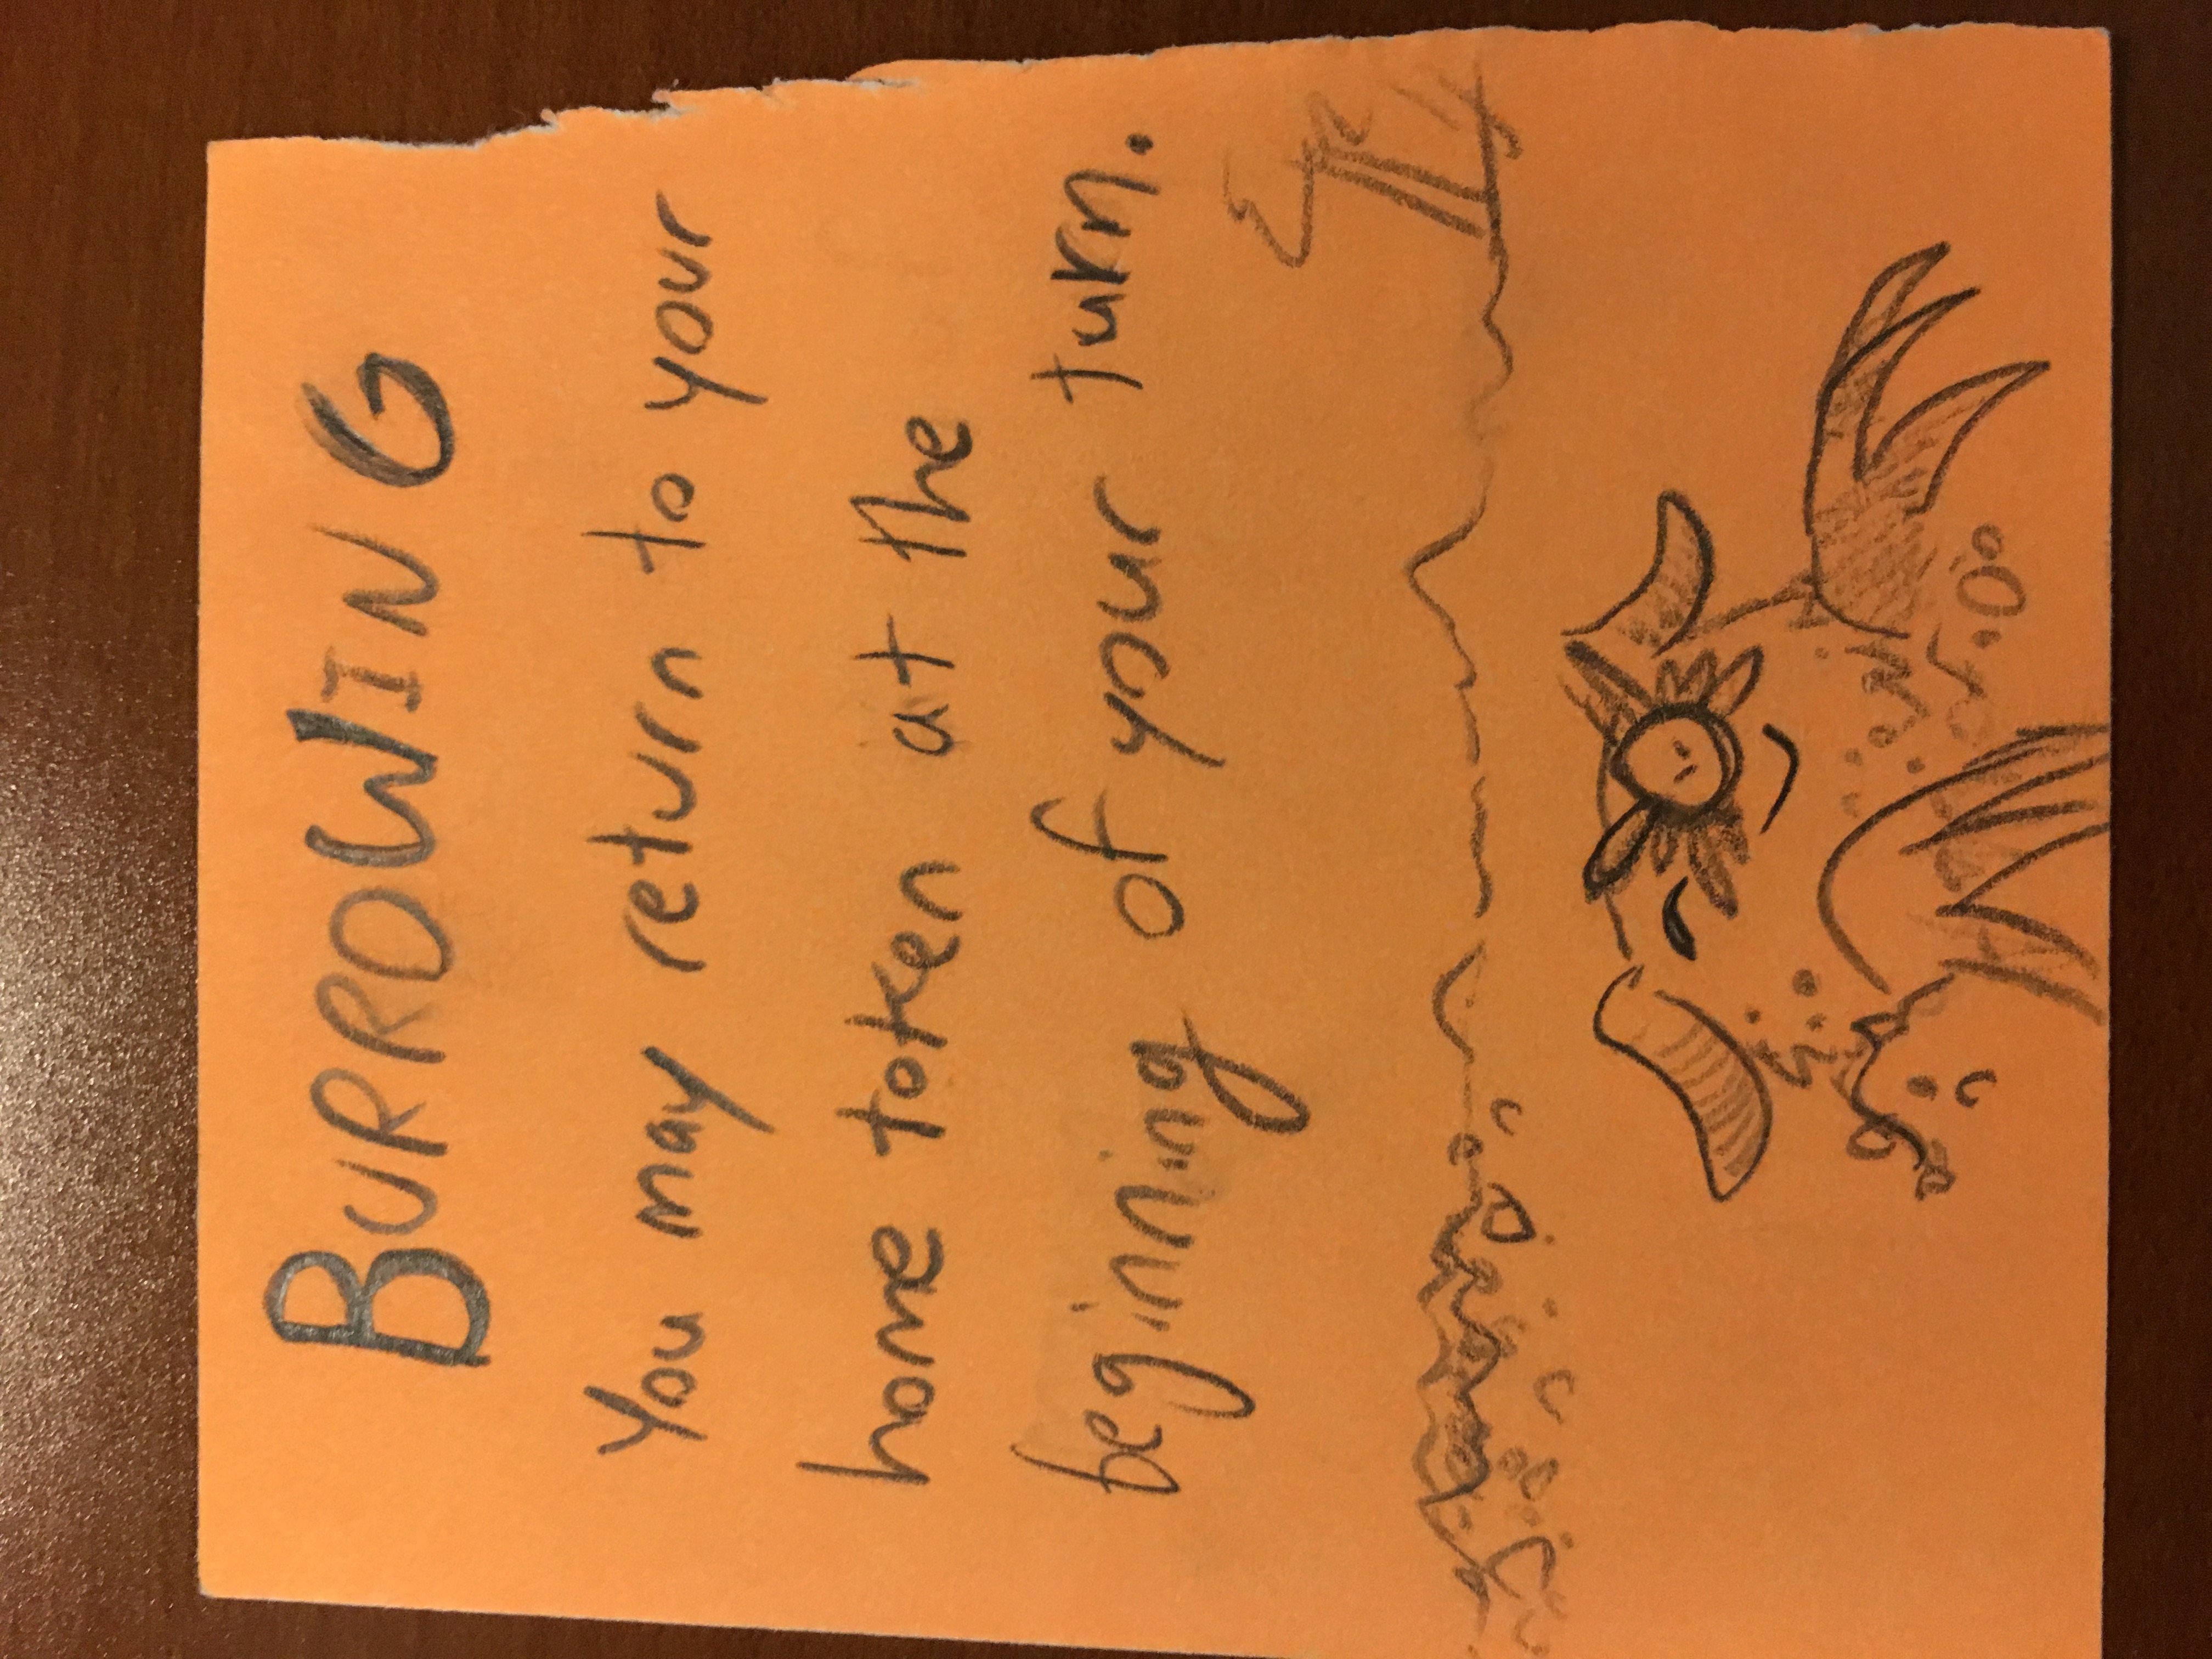 BURROWING
You may return to your
home token at the
beginning of your turn.